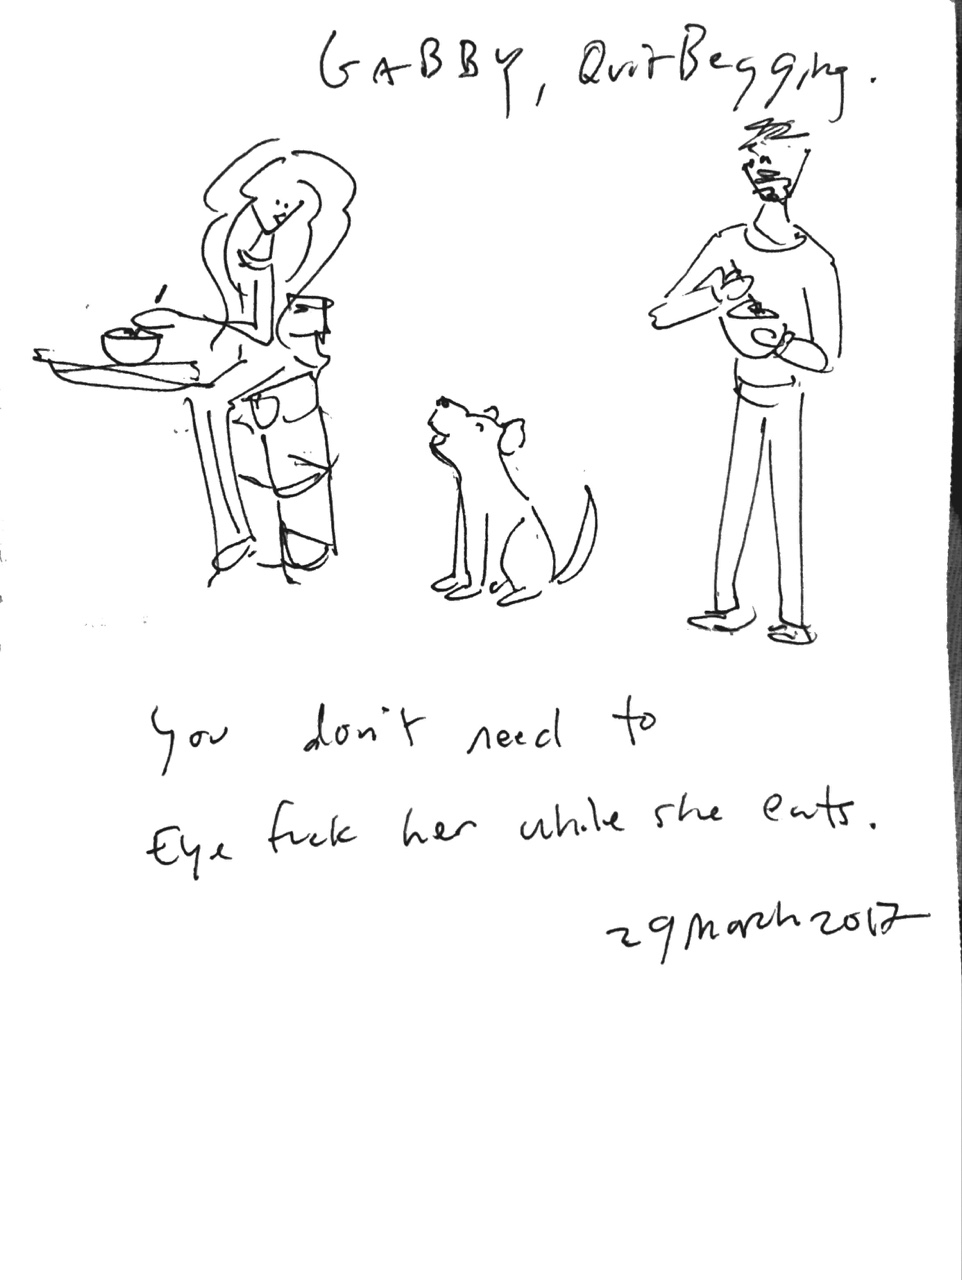 GABBY, Quit Begging.
You don't need to
Eye fuck her while she eats.
29 March 2017